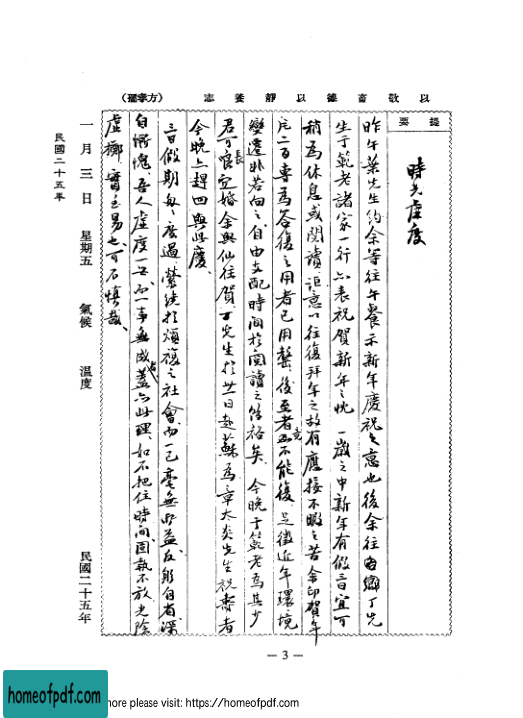 以敬畜德 以靜養志 (方孝孺)
提要
時光虛度
昨午葉先生約余等往午餐示新年慶祝之意也後余往丁先
生于範老諸家一行亦表祝賀新年之忱一歲之中新年有假三日宜可
稍為休息或閱讀詎意以往復拜年之故有應接不暇之苦余印賀年
片二百專為答復之用者已用罄後至者竟不能復足徵近年環境
變遷外若向之自由支配時間於閱讀之餘裕矣今晚于範老為其少
君可長完婚余與仙往賀丁先生於卅日赴蘇為章太炎先生祝壽者
今晚亦趕回與此慶
三日假期匆匆度過縈繞於煩複之社會而一己毫無所益反躬自省深
自慚愧吾人虛度一世而一事無成者蓋亦此理如不把住時間固執不放光陰
虛擲實至易也可不慎哉
一月三日 星期五 氣候 溫度 民國二十五年
民國二十五年
— 3 —
homeofpdf.com
more please visit: https://homeofpdf.com